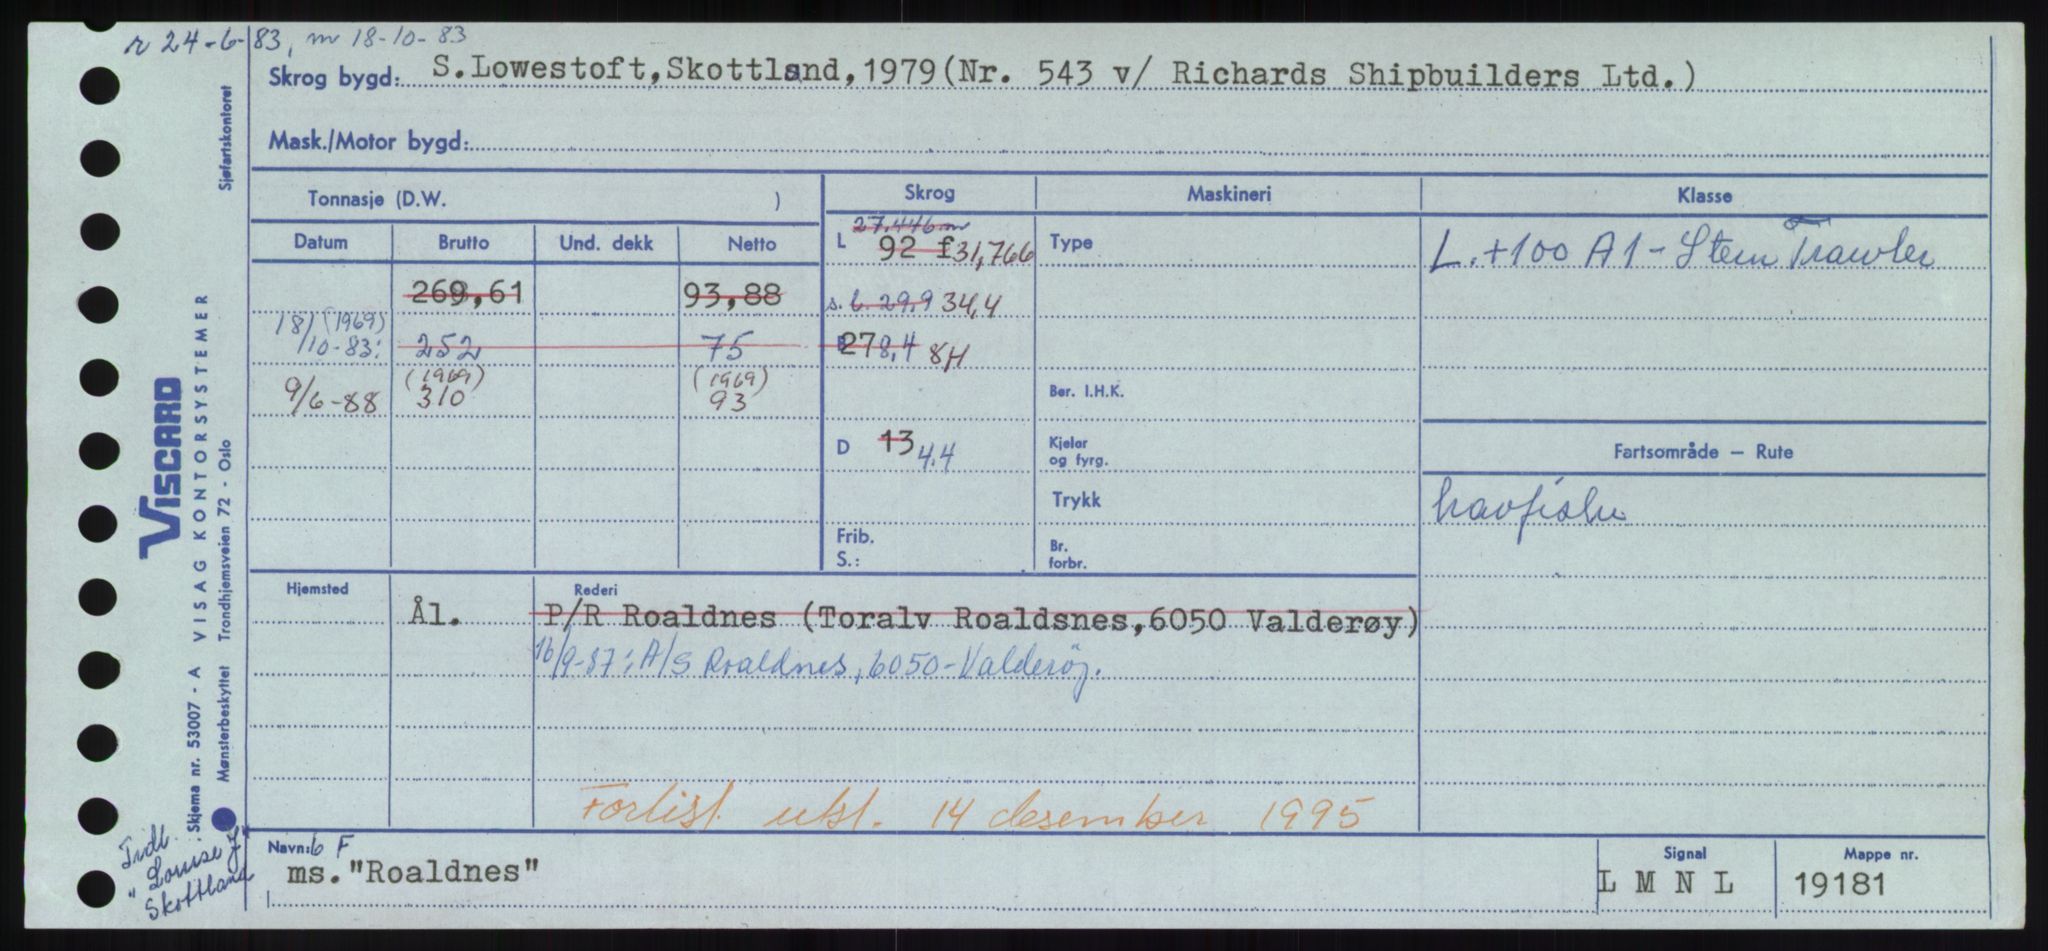 r 24-6-83, m 18-10-83
Skrog bygd: S.Lowestoft,Skottland,1979(Nr. 543 v/ Richards Shipbuilders Ltd.)
Mask./Motor bygd:
Tonnasje (D.W. )
Skrog
Maskineri
Klasse
Datum
Brutto
Und. dekk
Netto
L
27,446 m
92 f 31,766
Type
L. +100 A1 - Stern Trawler
269,61
93,88
s. l. 29,9 34,4
18/10-83:
(1969)
252
75
B
27 8,4 8H
9/6-88
(1969)
310
(1969)
93
Ber. I.H.K.
D 13 4,4
Kjelar
og fyrg.
Fartsområde — Rute
Trykk
havfiske
Frib.
S.:
Br.
forbr.
Hjemsted
Rederi
Ål.
P/R Roaldnes (Toralv Roaldsnes,6050 Valderøy)
16/9-87: A/S Roaldnes, 6050-Valderøy.
Fortist. utst. 14 desember 1995
Navn: 6 F
ms."Roaldnes"
Signal
L M N L
Mappe nr.
19181
Tidl.
"Louise J"
Skottland
VISCARD
VISAG KONTORSYSTEMER
Skjema nr. 53007 - A
Mønsterbeskyttet
Trondhjemsveien 72 - Oslo
Sjøfartskontoret